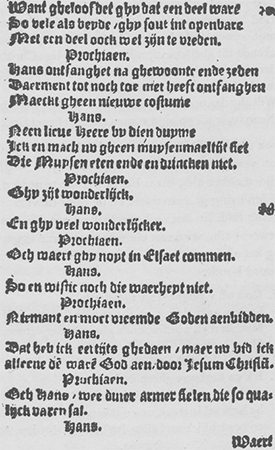 Want gheloofdet ghy dat een deel ware
So vele als beyde / ghy sout int openbare
Met een deel oock wel zijn te vreden.
Prochiaen.
Hans ontfanghet na ghewoonte ende zeden
Waerment tot noch toe niet heeft ontfanghen
Maeckt gheen nieuwe costume
Hans.
Neen lieue Heere by dien duyme
Ick en mach nv gheen muysenmaeltijt siet
Die Muysen eten ende en drincken niet.
Prochiaen.
Ghy zijt wonderlijck.
Hans.
En ghy veel wonderlijcker.
Prochiaen.
Och waert ghy noyt in Elsaet commen.
Hans.
So en wistic noch die waerheyt niet.
Prochiaen.
Niemant en moet vreemde Goden aenbidden.
Hans.
Dat heb ick eertijts ghedaen / maer nv bid ick
alleene dē warē God aen / door Jesum Christū.
Prochiaen.
Och Hans / wee dijner armer sielen, die so qua-
lijck varen sal.
Hans.
Waert